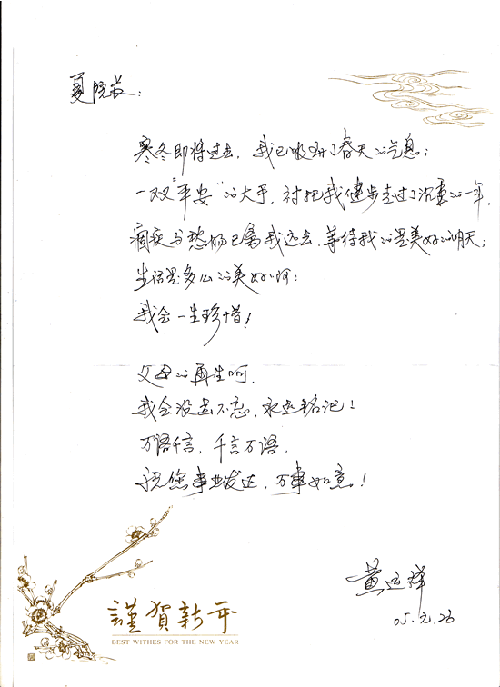 夏院长:
寒冬即将过去, 我已吸吮了春天的气息;
一双"平安"的大手, 衬托我健步走过了沉重的一年,
病症与愁肠已离我远去, 等待我的是美好的明天;
生活是多么的美好啊;
我会一生珍惜!
父母的再生啊,
我会没齿不忘, 永远铭记!
万语千言, 千言万语,
祝您事业发达, 万事如意!
黄
05.元.26
謹賀新年
BEST WITHES FOR THE NEW YEAR